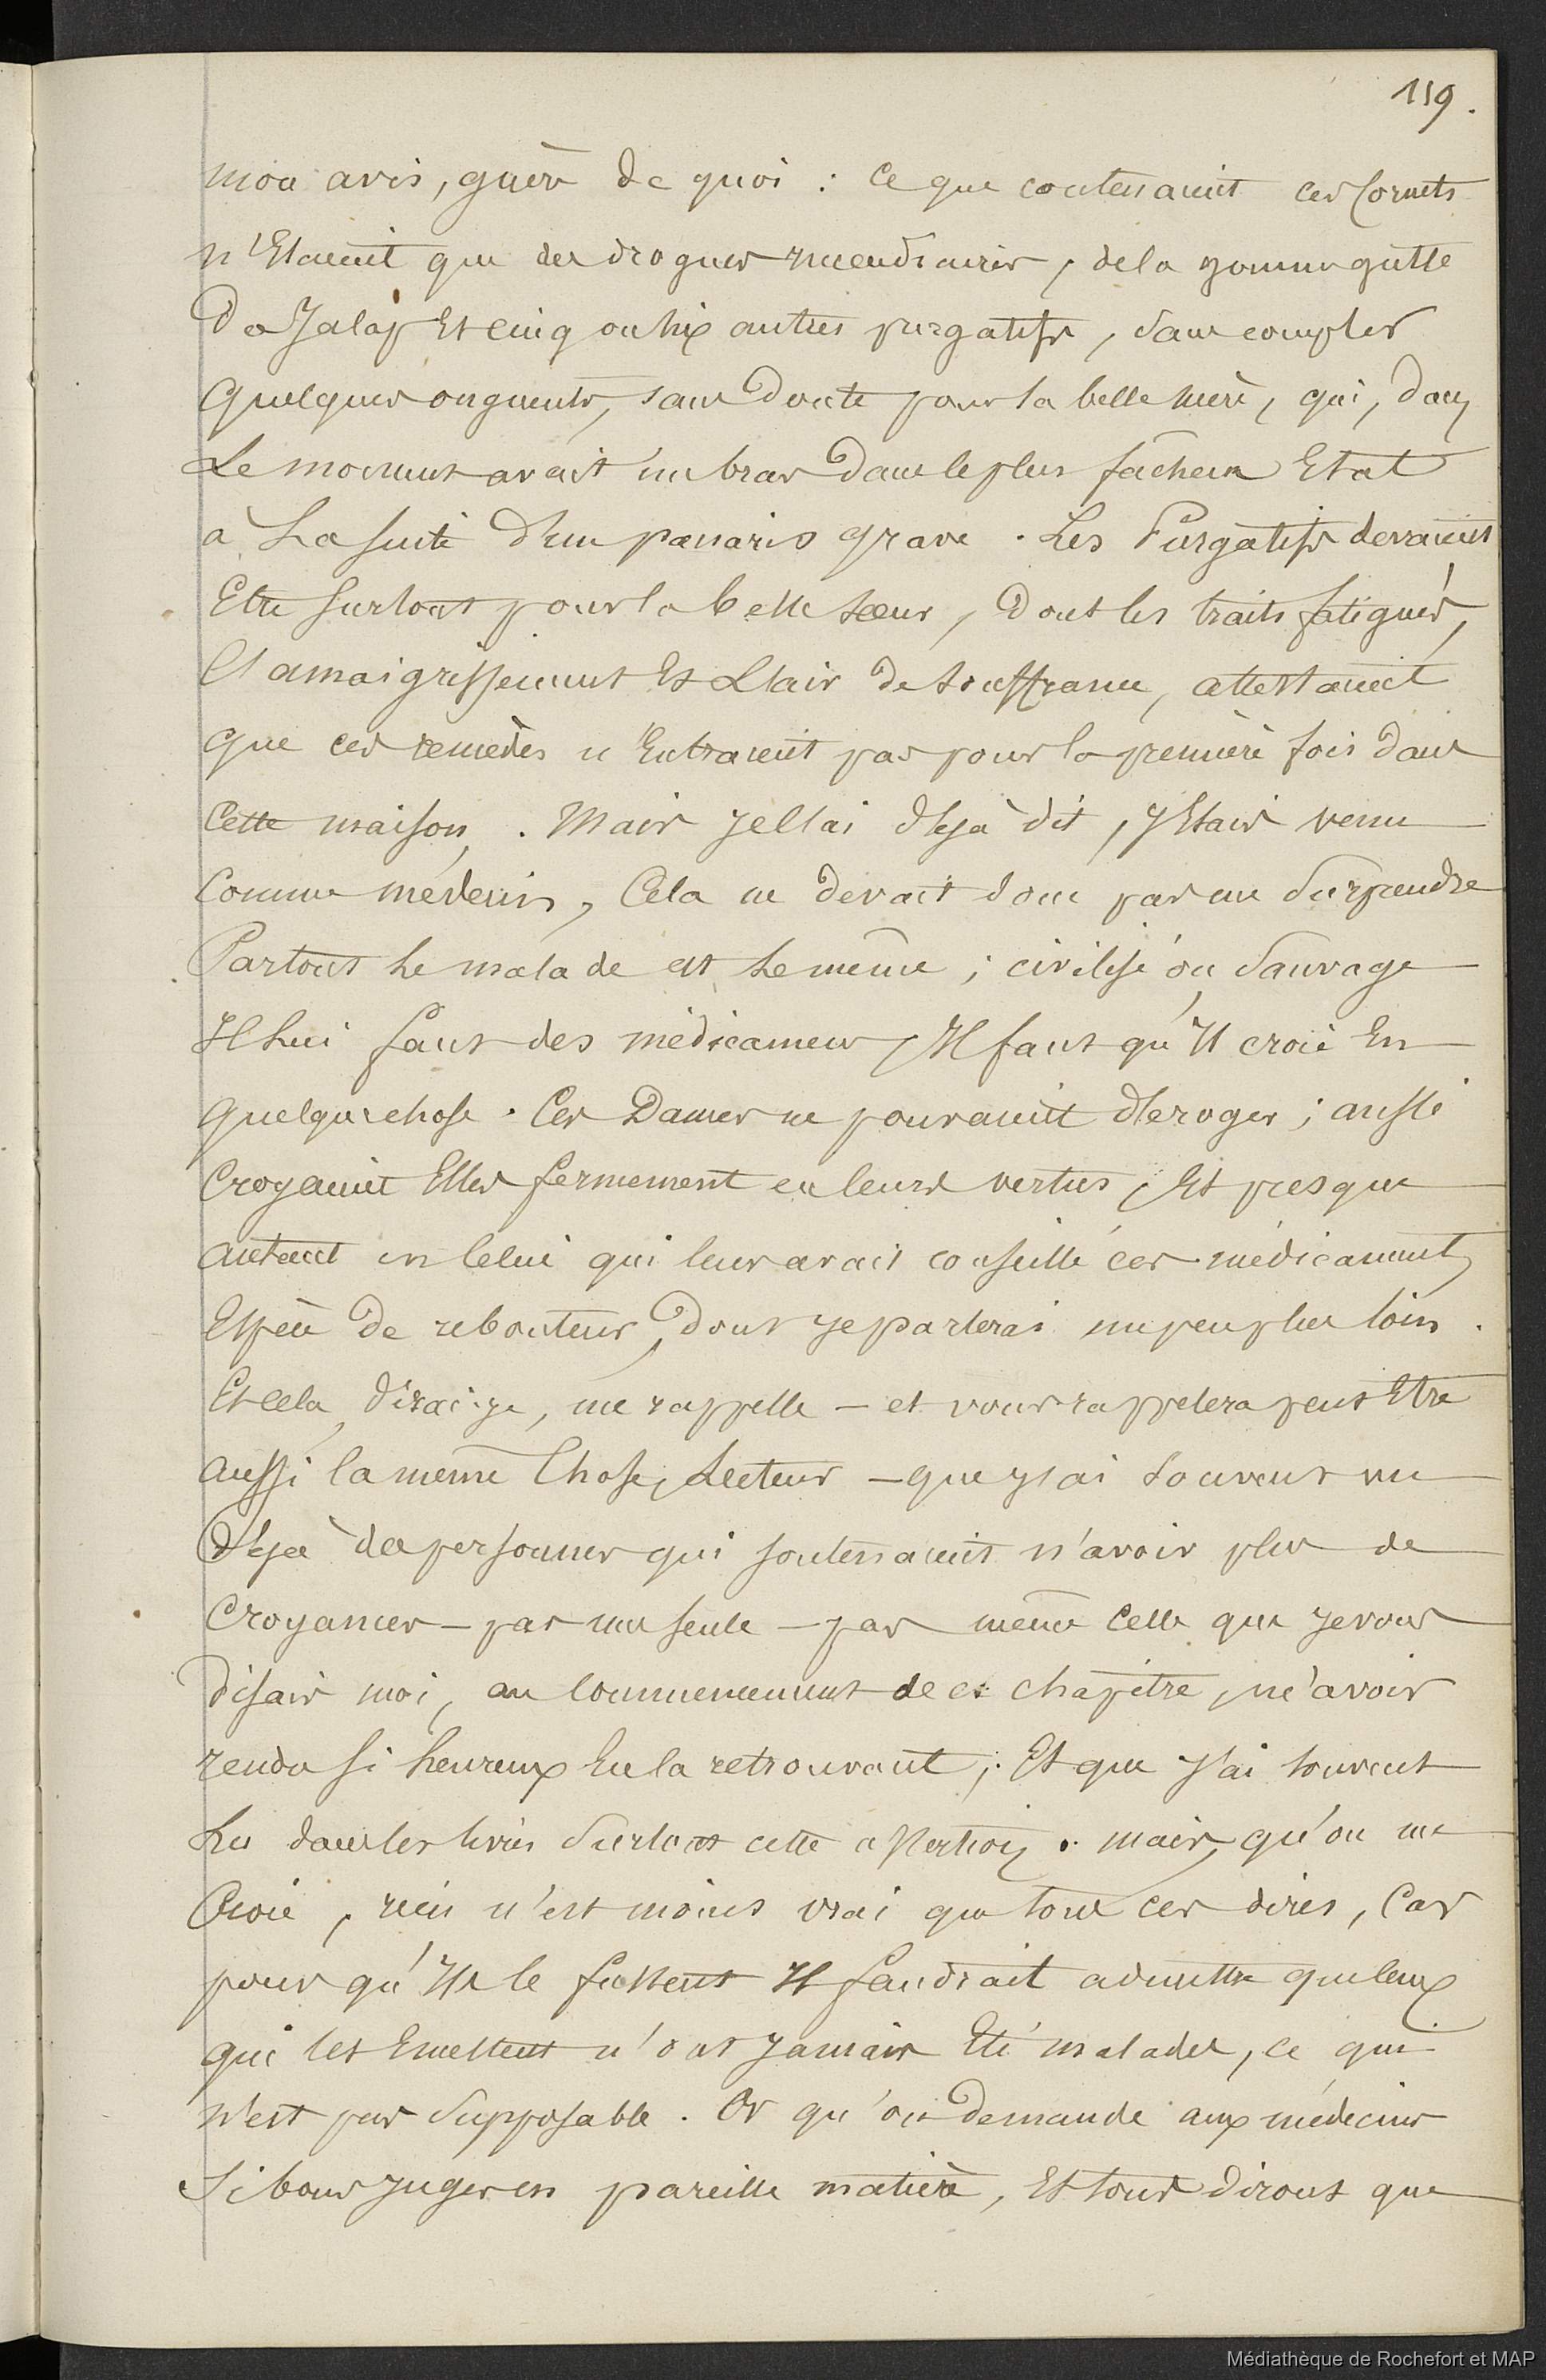 119.
mon avis, guère de quoi : ce que contenaient ces Cornets
n'Etaient que des drogues incendiaires, de la gomme gutte
De Jalap Et cinq ou six autres purgatifs, sans compter
Quelques onguents, sans Doute pour la belle mère, qui, dans
Le moment avait un bras Dans le plus fâcheux Etat
à La suite d'un panaris grave. Les Purgatifs devaient
Etre surtout pour la belle sœur, Dont les traits fatigués,
l'amaigrissement Et L'air De souffrance, attestaient
que ces remèdes n'Entraient pas pour la première fois dans
Cette maison. Mais je l'ai déjà dit, j'Etais venu
Comme médecin, Cela ne devait donc pas me Surprendre
Partout le malade est le même ; civilisé ou Sauvage
Il lui faut des médicamens, Il faut qu'Il croie En
quelque chose. Ces Dames ne pouvaient déroger ; aussi
Croyaient Elles fermement en leurs vertus, Et presque
autant en Celui qui leur avait conseillé ces médicaments
Espèce De rebouteur, dont je parlerai un peu plus loin.
Et Cela, dirai-je, me rappelle — et vous rappelera peut Etre
aussi la même Chose, Lecteur — que j'ai souvent vu
Déjà des personnes qui soutenaient n'avoir plus de
Croyances — pas une seule — pas même Celle que je vous
Disais moi, au Commencement de ce chapitre, m'avoir
rendu si heureux En la retrouvant ; Et que j'ai souvent
Lu dans les livres Surtout cette assertion. mais, qu'on me
Croie, rien n'est moins vrai que tous ces dires, Car
pour qu'Ils le fussent Il faudrait admettre que Ceux
qui les Emettent n'ont Jamais Eté malades, ce qui
n'est pas Supposable. Or qu'on Demande aux médecins
Si bons juges en pareille matière, Et tous diront que
Médiathèque de Rochefort et MAP